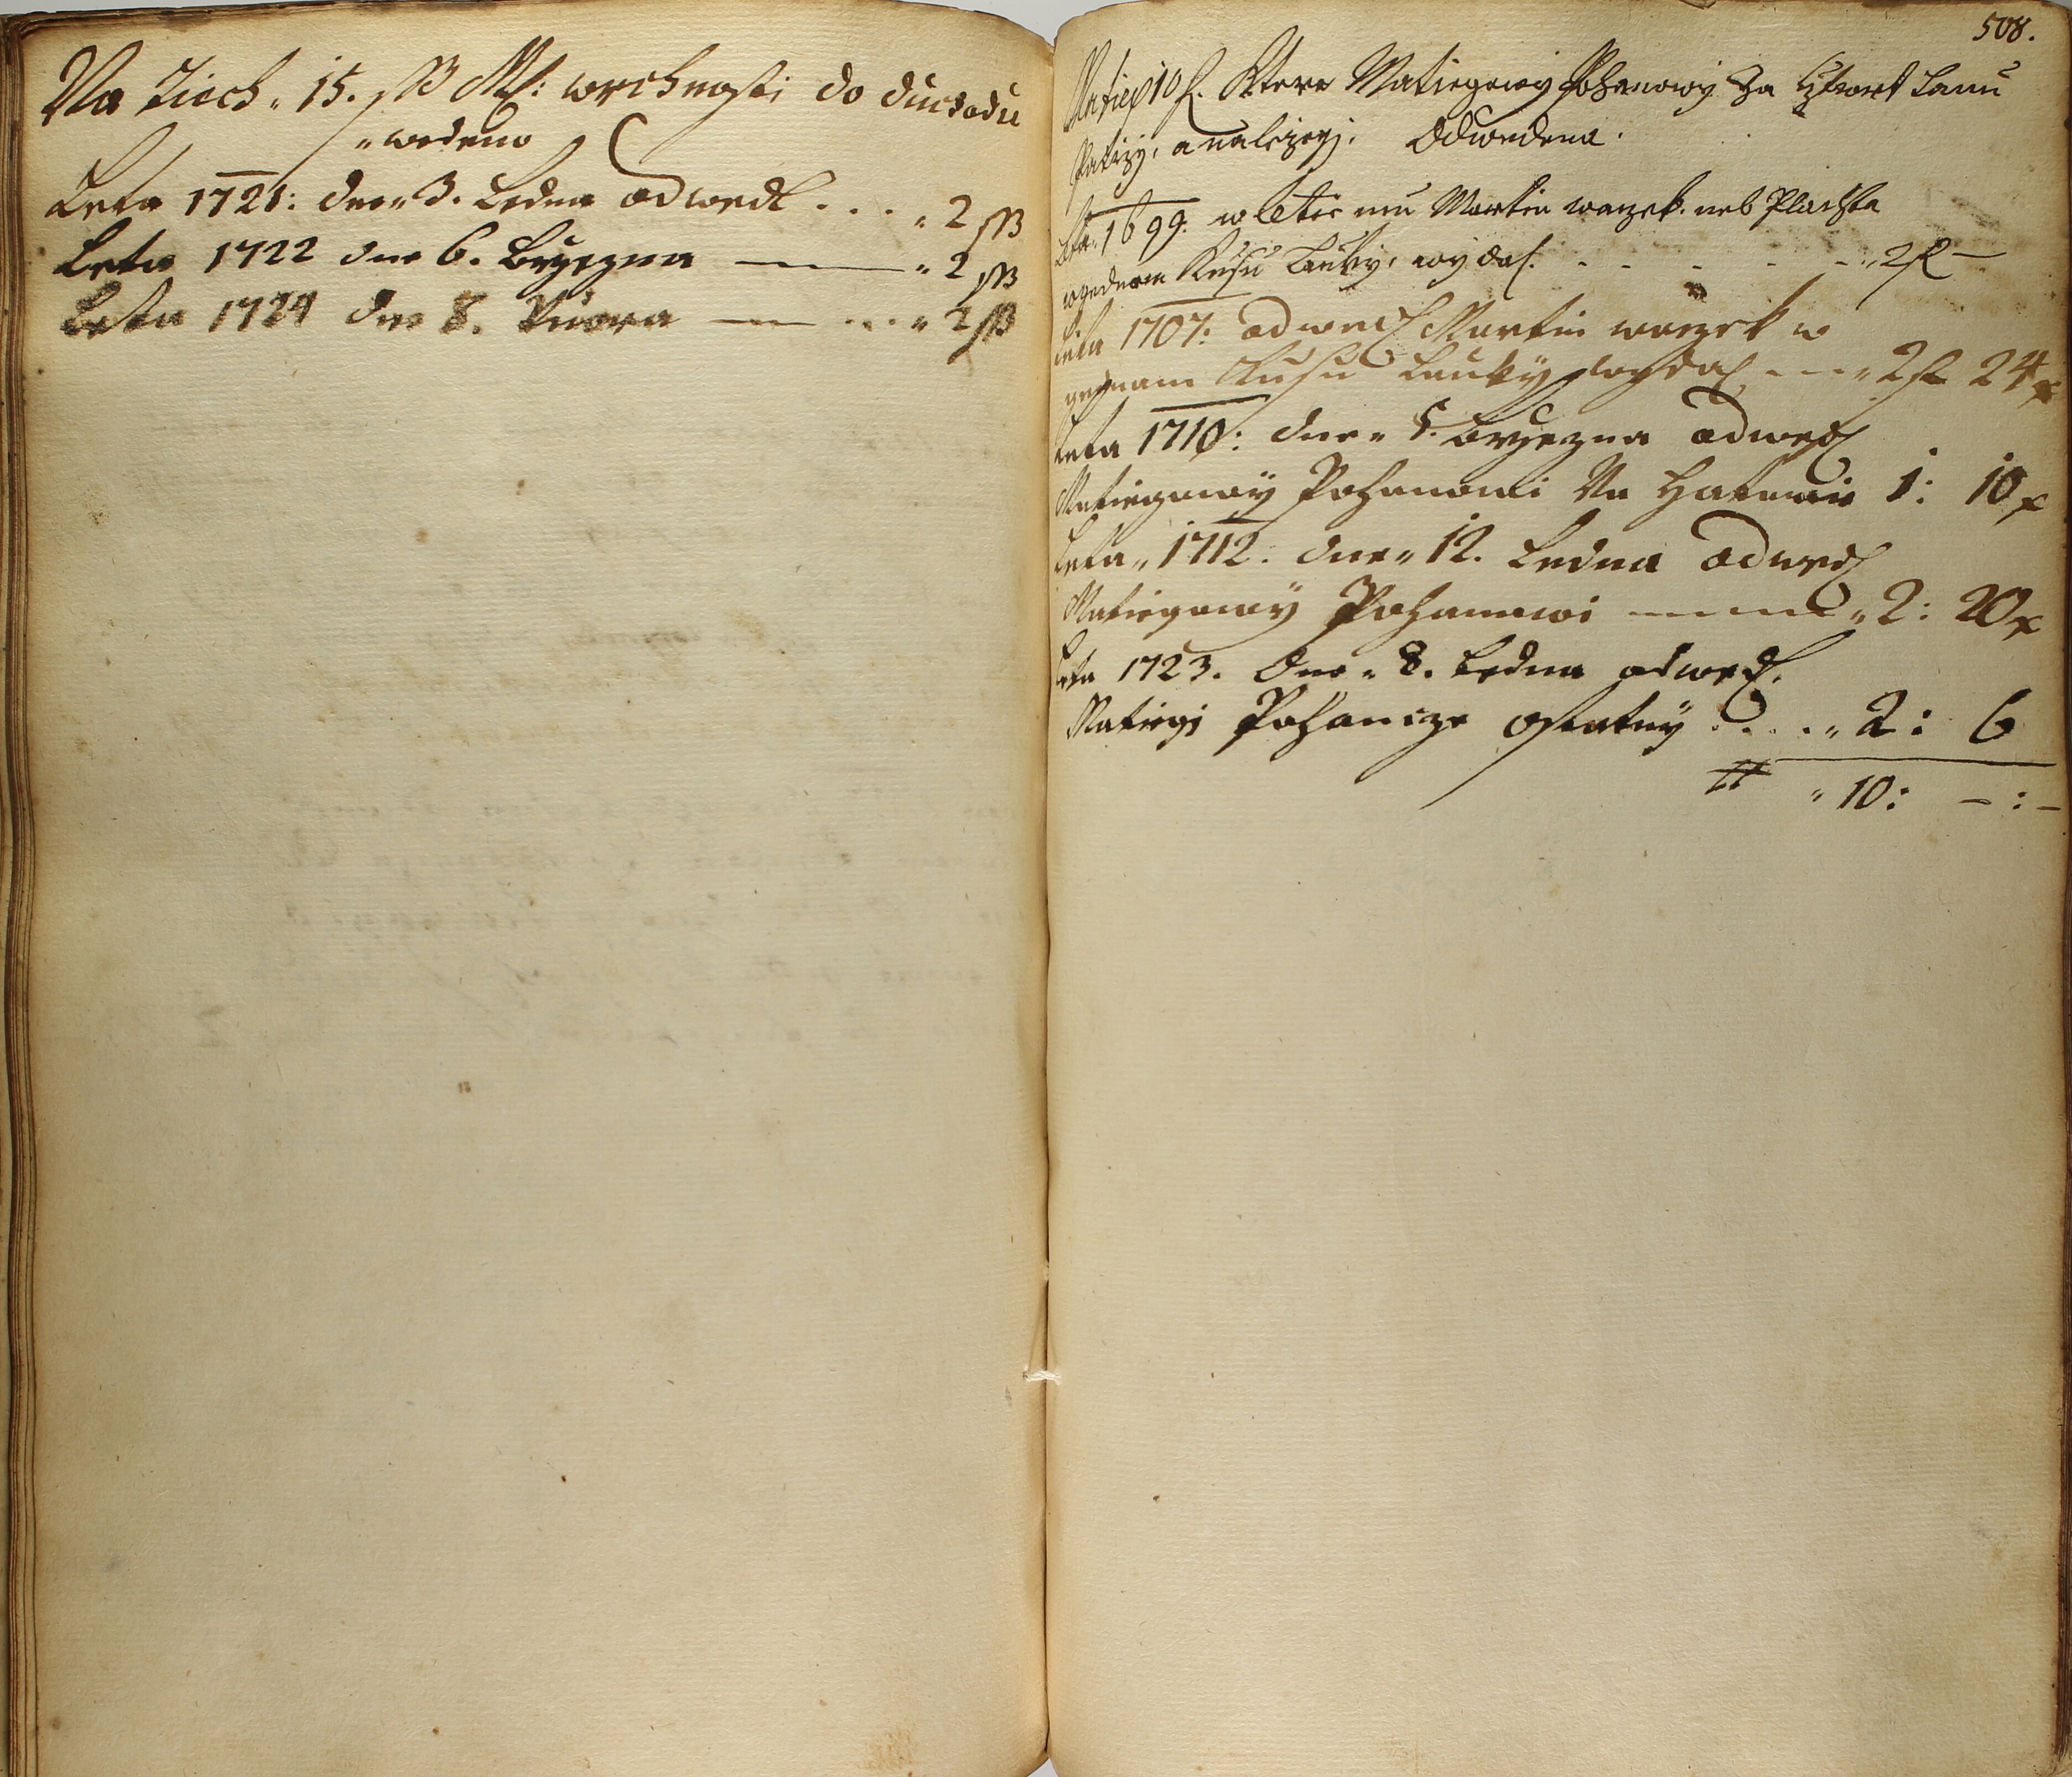 Na Tiech 15. ß M: wrchnosti do duchodu
wedeno
Leta 1721: dne 3. Ledna odwedl . . . 2 ß
Leta 1722 dne 6. Brzezna — 2 ß
Leta 1724 dne 8. Vnora — 2 ß
508.
10 f. Ktere Matiegowy Pohanowy Za cztwrt Lanu
Patrzy, a nalezegj. Odwedena.
Leta 1699. w Letie mu Martin wanzek. neb Plachta
wgednom Kusu Lauky, wydal. - - - - 2 f —
Leta 1707: odwedl Martin wanzek w
gednam Kusu Lauky wydal - - - 2 f 24 x
Leta 1710: dne 5. Brzezna odwedl
Matiegowy Pohanowi Na Hatowie 1: 10 x
Leta 1712: dne 12. Ledna odwedl
Matiegowy Pohanowi — 2: 20 x
Leta 1723. dne 8. Ledna odwedl.
Matiegi Pohancze ostatny . . . . 2: 6
10: — : —